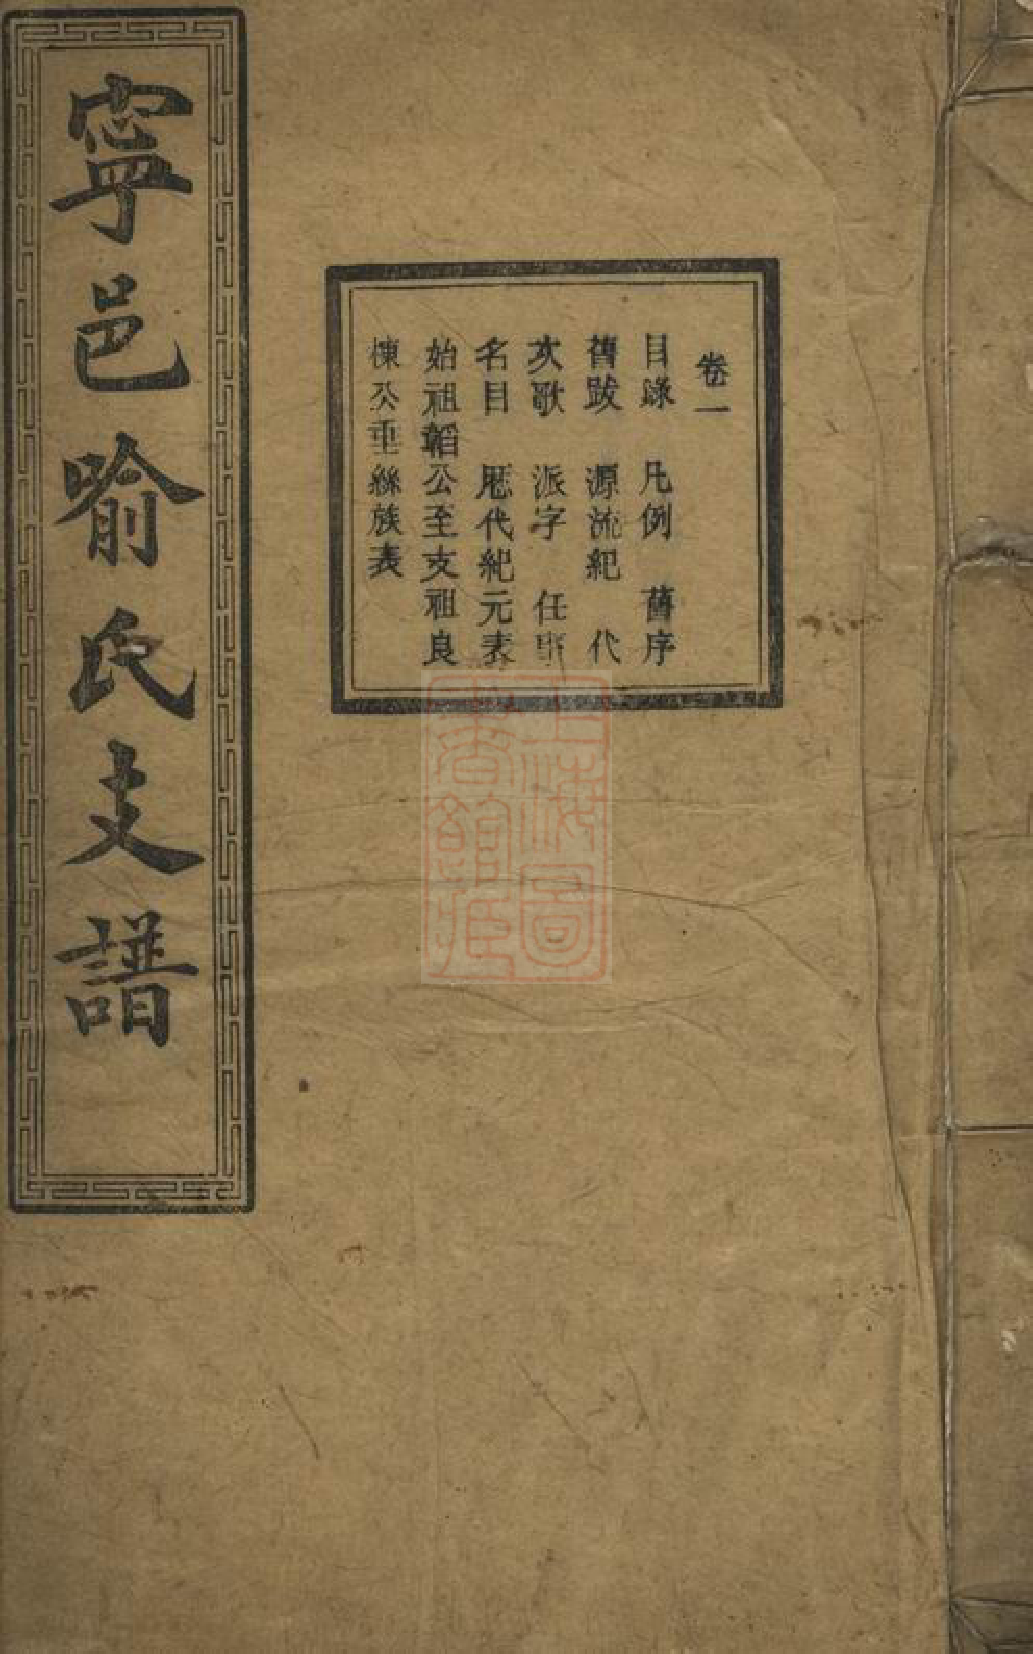 卷一
目錄　凡例　舊序
舊跋　源流紀　代
次歌　派字　任事
名目　歷代紀元表
始祖韜公至支祖良
棟公垂絲族表
寧邑喻氏支譜
上海圖
書館藏